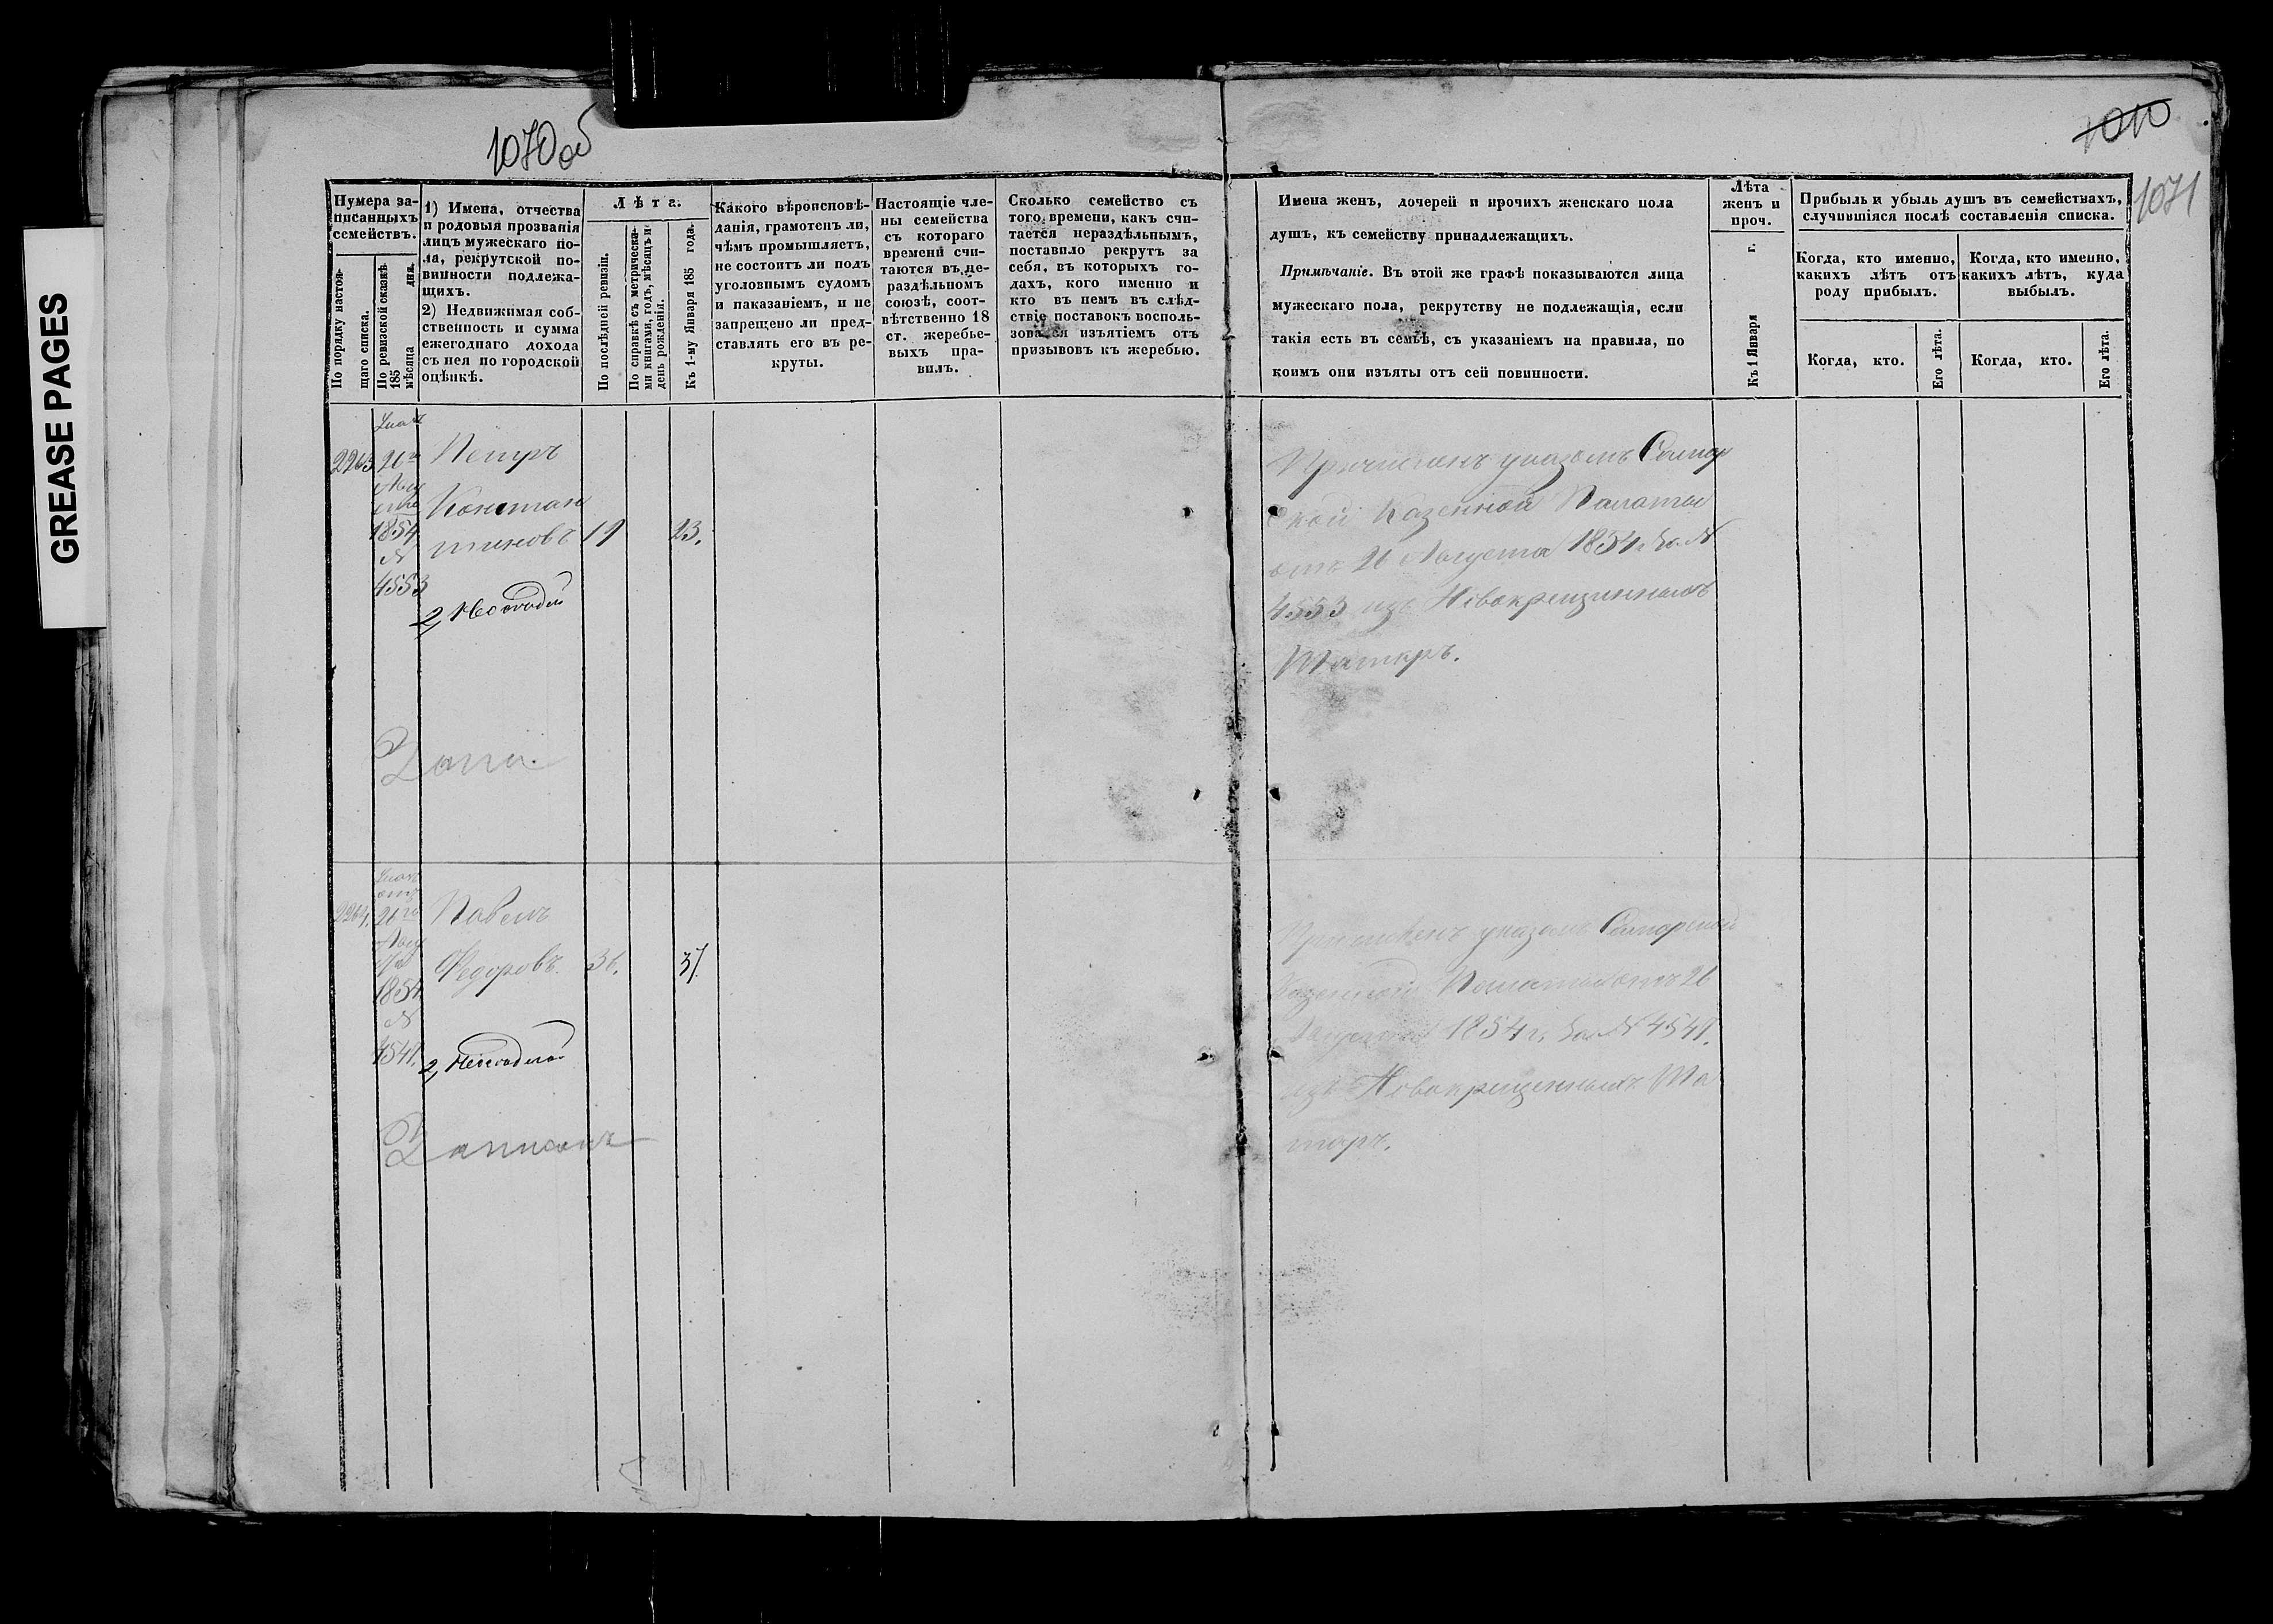 GREASE PAGES
1070 об
1010
1071
Нумера записанныхъ семействъ.
По порядку настоящаго списка.
По ревизской сказкѣ 185 мѣсяца дня.
1) Имена, отчества
и родовыя прозванія
лицъ мужескаго по-
ла, рекрутской по-
винности подлежа-
щихъ.
2) Недвижимая соб-
ственность и сумма
ежегоднаго дохода
съ нея по городской
оцѣнкѣ.
Лѣта.
По послѣдней ревизіи.
По справкѣ съ метрически-
ми книгами, годъ, мѣсяцъ и
день рожденія.
Къ 1-му Января 185 года.
Какого вѣроисповѣ-
данія, грамотенъ ли,
чѣмъ промышляетъ,
не состоитъ ли подъ
уголовнымъ судомъ
и наказаніемъ, и не
запрещено ли пред-
ставлять его въ ре-
круты.
Настоящіе чле-
ны семейства
съ котораго
времени счи-
таются въ не-
раздѣльномъ
союзѣ, соот-
вѣтственно 18
ст. жеребье-
выхъ пра-
вилъ.
Сколько семейство съ
того времени, какъ счи-
тается нераздѣльнымъ,
поставило рекрутъ за
себя, въ которыхъ го-
дахъ, кого именно и
кто въ немъ въ слѣд-
ствіе поставокъ восполь-
зовался изъятіемъ отъ
призывовъ къ жеребью.
Имена женъ, дочерей и прочихъ женскаго пола
душъ, къ семейству принадлежащихъ.
Примѣчаніе. Въ этой же графѣ показываются лица
мужескаго пола, рекрутству не подлежащія, если
такія есть въ семьѣ, съ указаніемъ на правила, по
коимъ они изъяты отъ сей повинности.
Лѣта
женъ и
проч.
Къ 1 Января г.
Прибыль и убыль душъ въ семействахъ,
случившіяся послѣ составленія списка.
Когда, кто именно,
какихъ лѣтъ отъ
роду прибылъ.
Когда, кто именно,
какихъ лѣтъ, куда
выбылъ.
Когда, кто.
Его лѣта.
Когда, кто.
Его лѣта.
2263
26го
Авгу
ста
1854
№
4553
Петръ
Констан
тиновъ 19 23.
Причисленъ указомъ Самар
ской Казенной Палаты
отъ 26 Августа 1854 г. за №
4553 изъ Новокрещенныхъ
Татаръ.
2264.
отъ
26го
Авгу
ста
1854
№
4541.
Павелъ
Федоровъ. 36. 37.
Записанъ
Причисленъ указомъ Самарской
Казенной Палаты отъ 26
Августа 1854 г. за № 4541.
изъ Новокрещенныхъ Та
таръ.